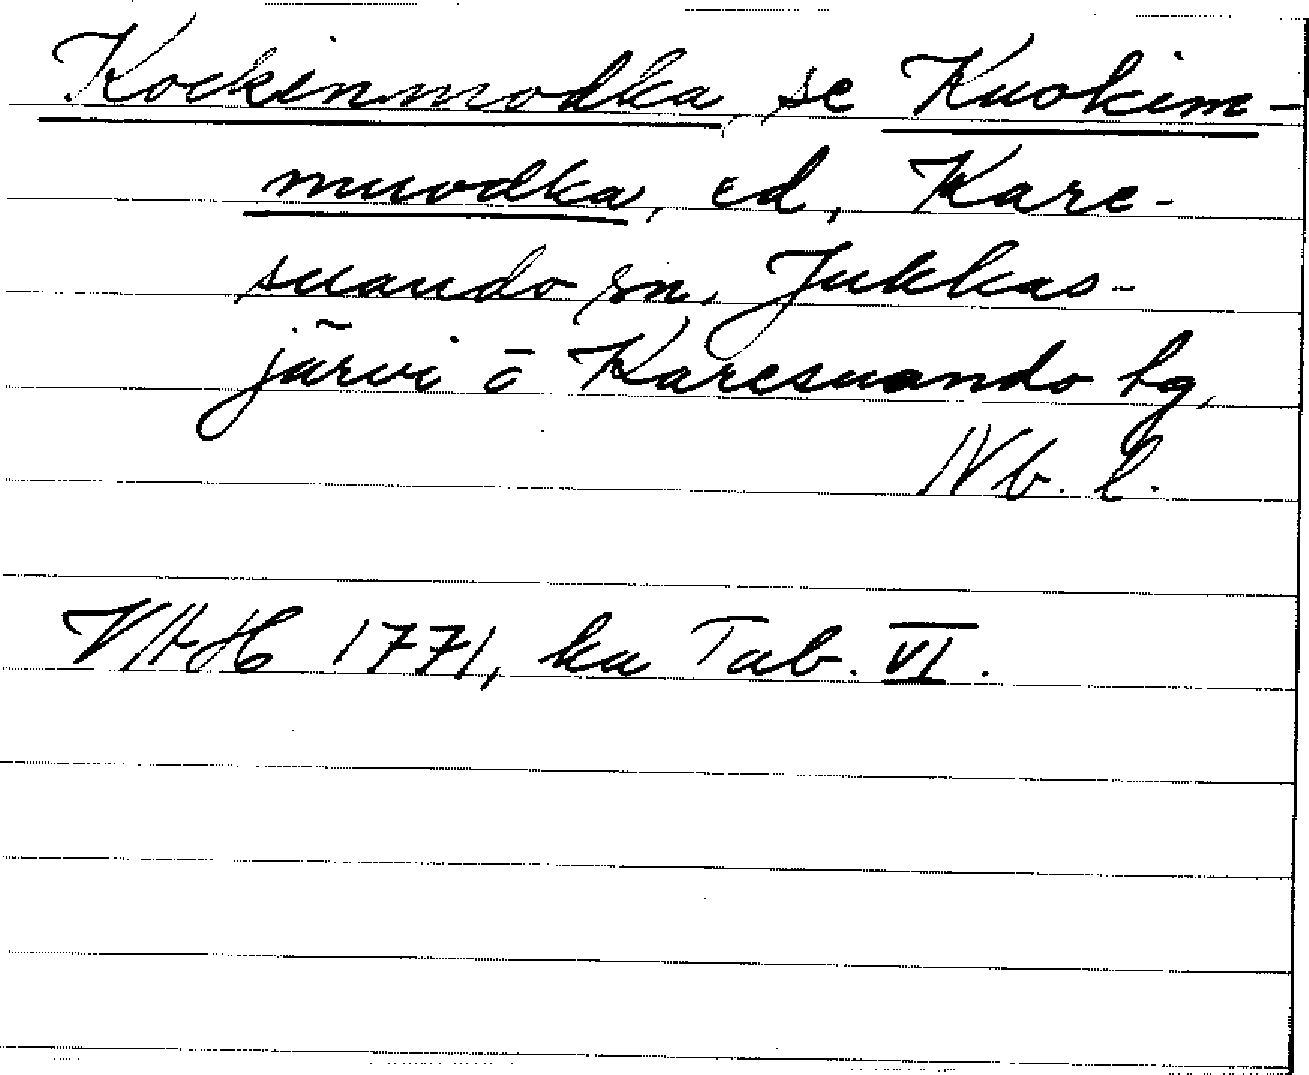 Kockinmodka, se Kuokim-
muodka, ed, Kare-
suando sn. Jukkas-
järvi o Karesuando lg,
Nb. l.
VAH 1771, ka Tab. VI.